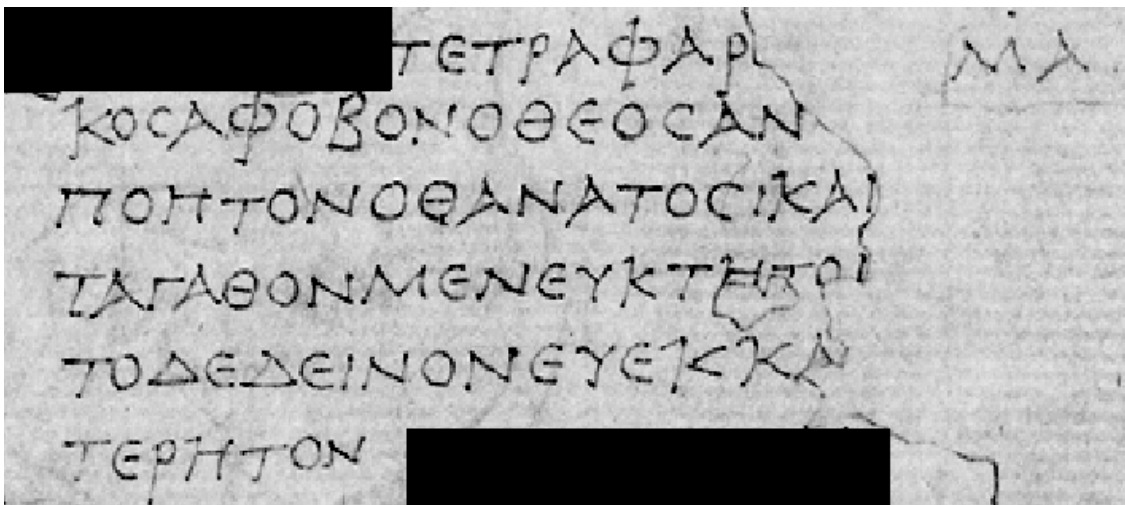 ΤΕΤΡΑΦΑΡ ΜΑ
ΚΟСΑΦΟΒΟΝΟΘΕΟСΑΝ
ΠΟΗΤΟΝΟΘΑΝΑΤΟСΙΚΑΙ
ΤΑΓΑΘΟΝΜΕΝΕΥΚΤΗΤΟ
ΤΟΔΕΔΕΙΝΟΝΕΥΕΚΚΑ
ΤΕΡΗΤΟΝ